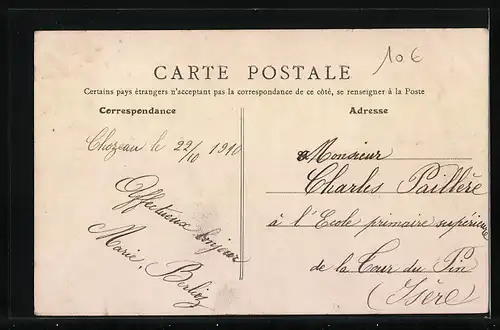 10€
CARTE POSTALE
Certains pays étrangers n'acceptant pas la correspondance de ce côté, se renseigner à la Poste
Correspondance
Adresse
Chozeau le 22/10 1910
Affectueux bonjour
Marie
Monsieur
Charles Paillère
à l'Ecole primaire supérieure
de la Tour du Pin
(Isère)